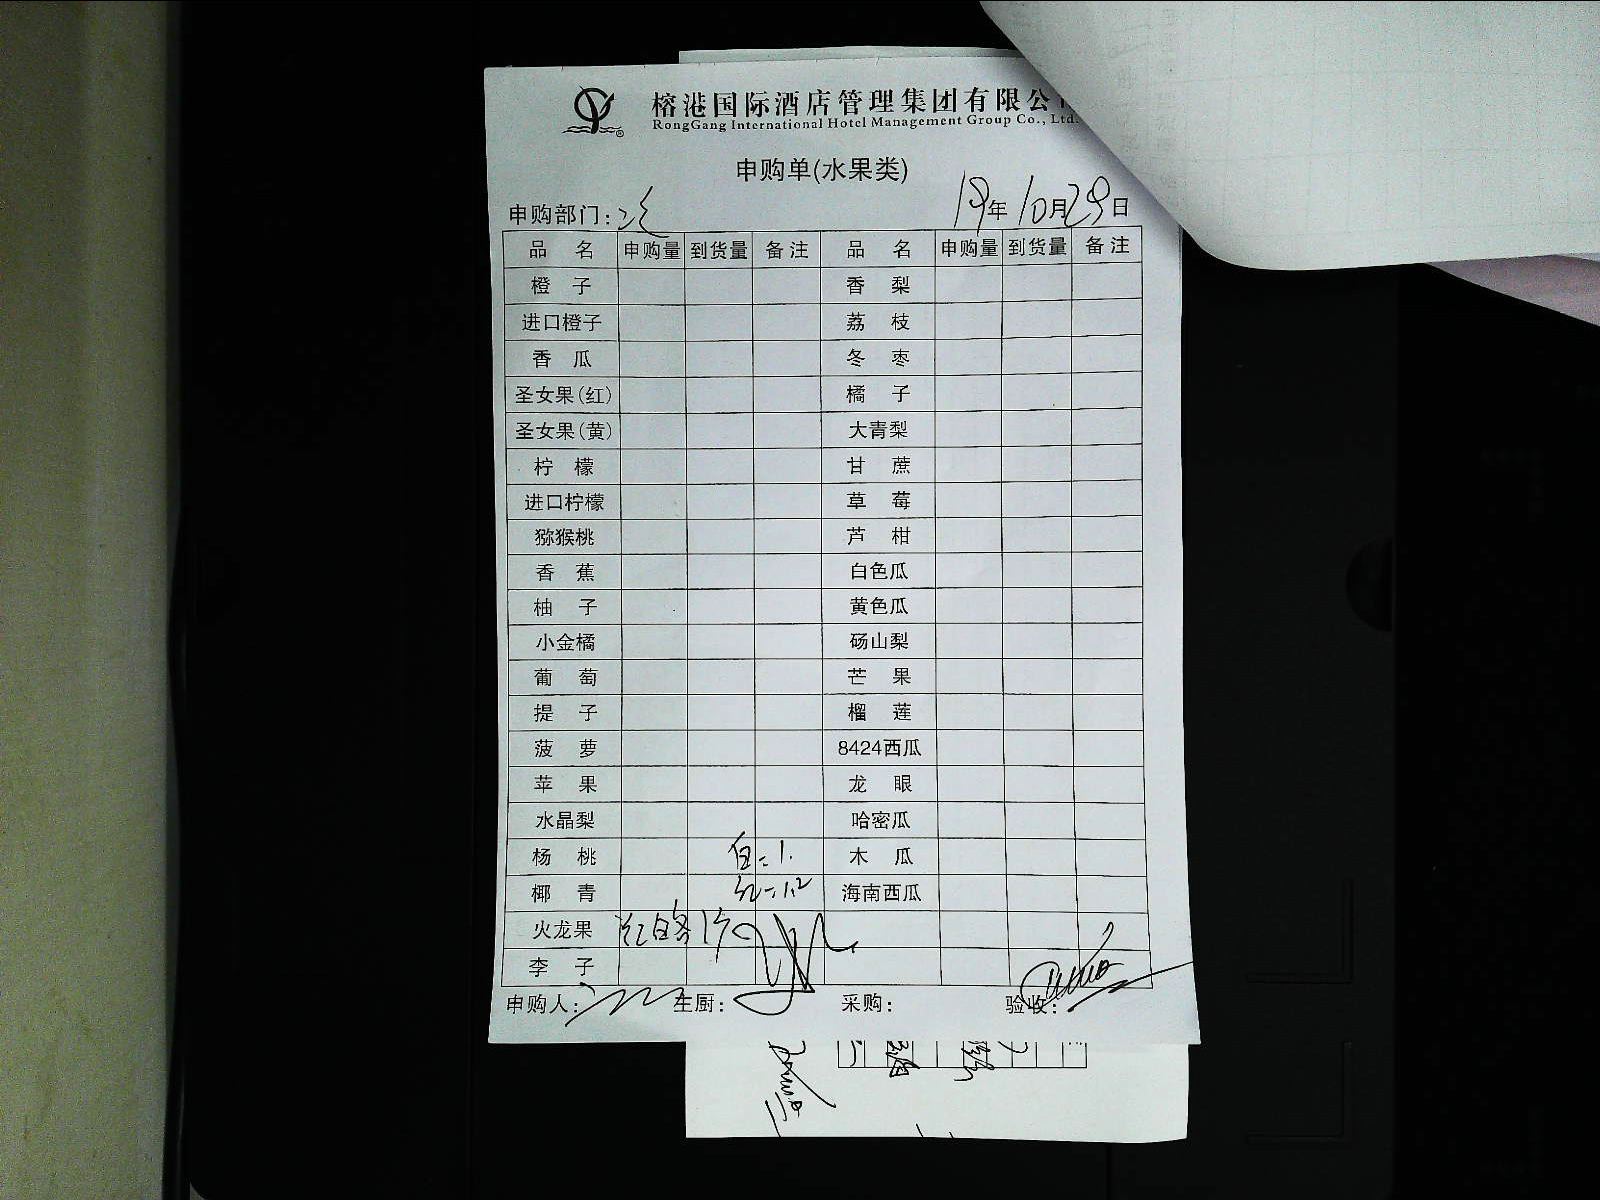 榕港国际酒店管理集团有限公
RongGang International Hotel Management Group Co., Ltd.
申购单(水果类)
申购部门: 19年10月29日
品 名 申购量 到货量 备注 品 名 申购量 到货量 备注
橙 子 香 梨
进口橙子 荔 枝
香 瓜 冬 枣
圣女果(红) 橘 子
圣女果(黄) 大青梨
柠 檬 甘 蔗
进口柠檬 草 莓
猕猴桃 芦 柑
香 蕉 白色瓜
柚 子 黄色瓜
小金橘 砀山梨
葡 萄 芒 果
提 子 榴 莲
菠 萝 8424西瓜
苹 果 龙 眼
水晶梨 哈密瓜
杨 桃 白=1. 木 瓜
椰 青 红=1.2 海南西瓜
火龙果 红白各1个
李 子
申购人: 主厨: 采购: 验收: